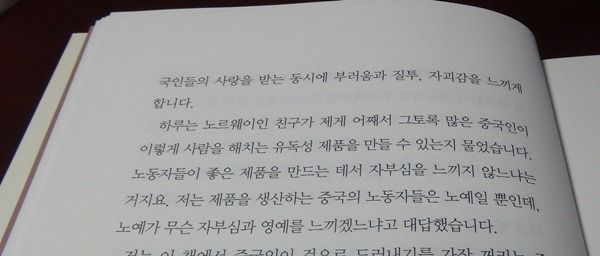 국인들의 사랑을 받는 동시에 부러움과 질투, 자괴감을 느끼게
합니다.
하루는 노르웨이인 친구가 제게 어째서 그토록 많은 중국인이
이렇게 사람을 해치는 유독성 제품을 만들 수 있는지 물었습니다.
노동자들이 좋은 제품을 만드는 데서 자부심을 느끼지 않느냐는
거지요. 저는 제품을 생산하는 중국의 노동자들은 노예일 뿐인데,
노예가 무슨 자부심과 영예를 느끼겠느냐고 대답했습니다.
저는 이 책에서 중국인이 겉으로 드러내기를 가장 꺼리는